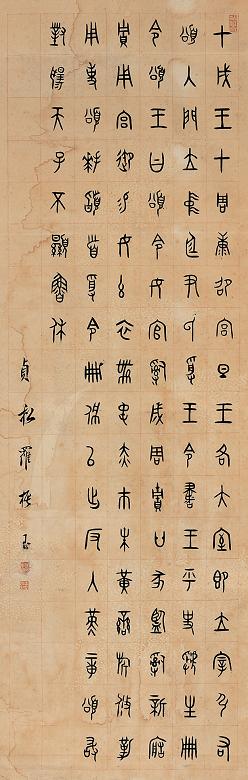 甲戌王才周康卲宮旦王各大室即立宰弘右
頌入門立中廷尹氏受王令書王乎史虢生冊
令頌王曰頌令女官𤔲成周貯廿家監𤔲新寤
貯用宮御易女玄衣黹屯赤巿朱黃鑾旂攸勒
用事頌拜稽首受令冊佩以出反入堇章頌敢
對揚天子不顯魯休
貞松羅振玉